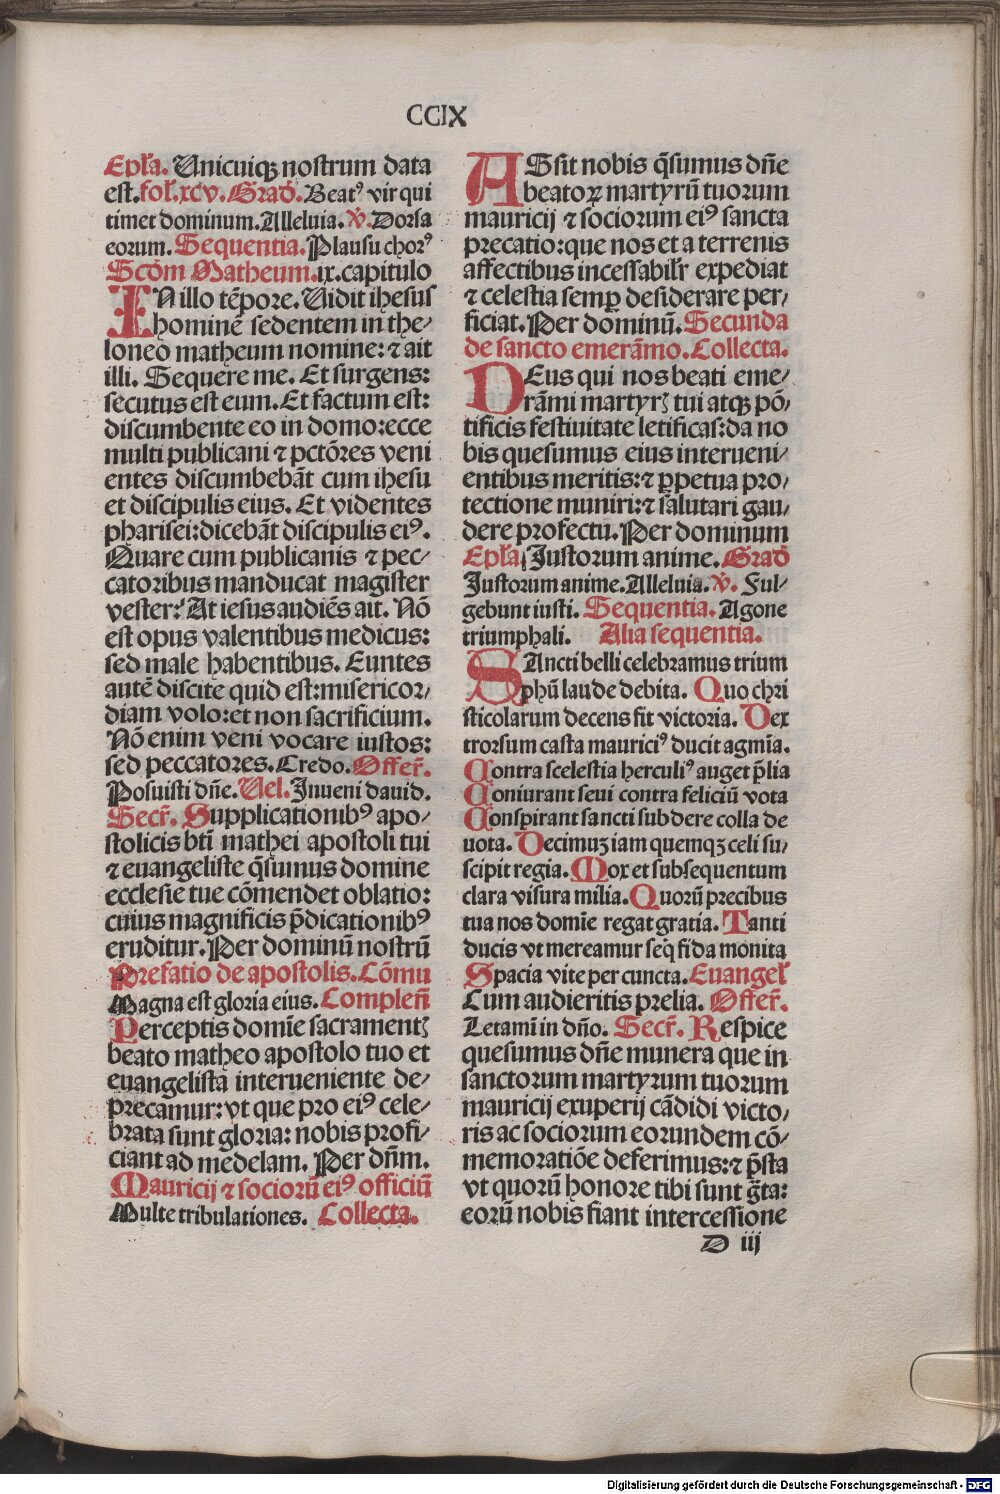 CCIX
Ep̄la. Unicuiqꝫ nostrum data
est. fol̄. xcv. Grad̄. Beatꝰ vir qui
timet dominum. Alleluia. v̄. Dorsa
eorum. Sequentia. Plausu chorꝰ
Scd̄m Matheum. ix. capitulo
IN illo tēpore. Vidit ihesus
hominē sedentem in the⸗
loneo matheum nomine: ⁊ ait
illi. Sequere me. Et surgens:
secutus est eum. Et factum est:
discumbente eo in domo: ecce
multi publicani ⁊ pctōres veni
entes discumbebāt cum ihesu
et discipulis eius. Et videntes
pharisei: dicebāt discipulis eiꝰ.
Quare cum publicanis ⁊ pec⸗
catoribus manducat magister
vester? At iesus audiēs ait. Nō
est opus valentibus medicus:
sed male habentibus. Euntes
autē discite quid est: misericor⸗
diam volo: et non sacrificium.
Nō enim veni vocare iustos:
sed peccatores. Credo. Offer̄.
Posuisti dn̄e. Vel. Inueni dauid.
Secr̄. Supplicationibꝰ apo⸗
stolicis bt̄i mathei apostoli tui
⁊ euangeliste q̄sumus domine
ecclesie tue cōmendet oblatio:
cuius magnificis p̄dicationibꝰ
eruditur. Per dominū nostrū
Prefatio de apostolis. Cōmu
Magna est gloria eius. Complen̄
Perceptis domīe sacramentꝭ
beato matheo apostolo tuo et
euangelista interueniente de⸗
precamur: vt que pro eiꝰ cele⸗
brata sunt gloria: nobis profi⸗
ciant ad medelam. Per dn̄m.
Mauricij ⁊ sociorū eiꝰ officiū
Multe tribulationes. Collecta.
ASsit nobis q̄sumus dn̄e
beatoꝝ martyrū tuorum
mauricij ⁊ sociorum eiꝰ sancta
precatio: que nos et a terrenis
affectibus incessabilr̄ expediat
⁊ celestia semꝑ desiderare per⸗
ficiat. Per dominū. Secunda
de sancto emerāmo. Collecta.
DEus qui nos beati eme⸗
rāmi martyrꝭ tui atqꝫ pō⸗
tificis festiuitate letificas: da no
bis quesumus eius interueni⸗
entibus meritis: ⁊ ꝑpetua pro⸗
tectione muniri: ⁊ salutari gau⸗
dere profectu. Per dominum
Ep̄la. Iustorum anime. Grad̄
Iustorum anime. Alleluia. v̄. Ful⸗
gebunt iusti. Sequentia. Agone
triumphali. Alia sequentia.
SAncti belli celebramus trium
phū laude debita. Quo chri
sticolarum decens fit victoria. Dex
trorsum casta mauriciꝰ ducit agmīa.
Contra scelestia herculiꝰ auget p̄lia
Coniurant seui contra feliciū vota
Conspirant sancti sub dere colla de
uota. Decimuꝫ iam quemqꝫ celi su⸗
scipit regia. Mox et subsequentum
clara visura milia. Quorū precibus
tua nos domīe regat gratia. Tanti
ducis vt mereamur seq̄ fida monita
Spacia vite per cuncta. Euangel̄
Cum audieritis prelia. Offer̄.
Letamī in dn̄o. Secr̄. Respice
quesumus dn̄e munera que in
sanctorum martyrum tuorum
mauricij exuperij cādidi victo⸗
ris ac sociorum eorundem cō⸗
memoratiōe deferimus: ⁊ p̄sta
vt quorū honore tibi sunt g̃ta:
eorū nobis fiant intercessione
D iij
Digitalisierung gefördert durch die Deutsche Forschungsgemeinschaft - DFG